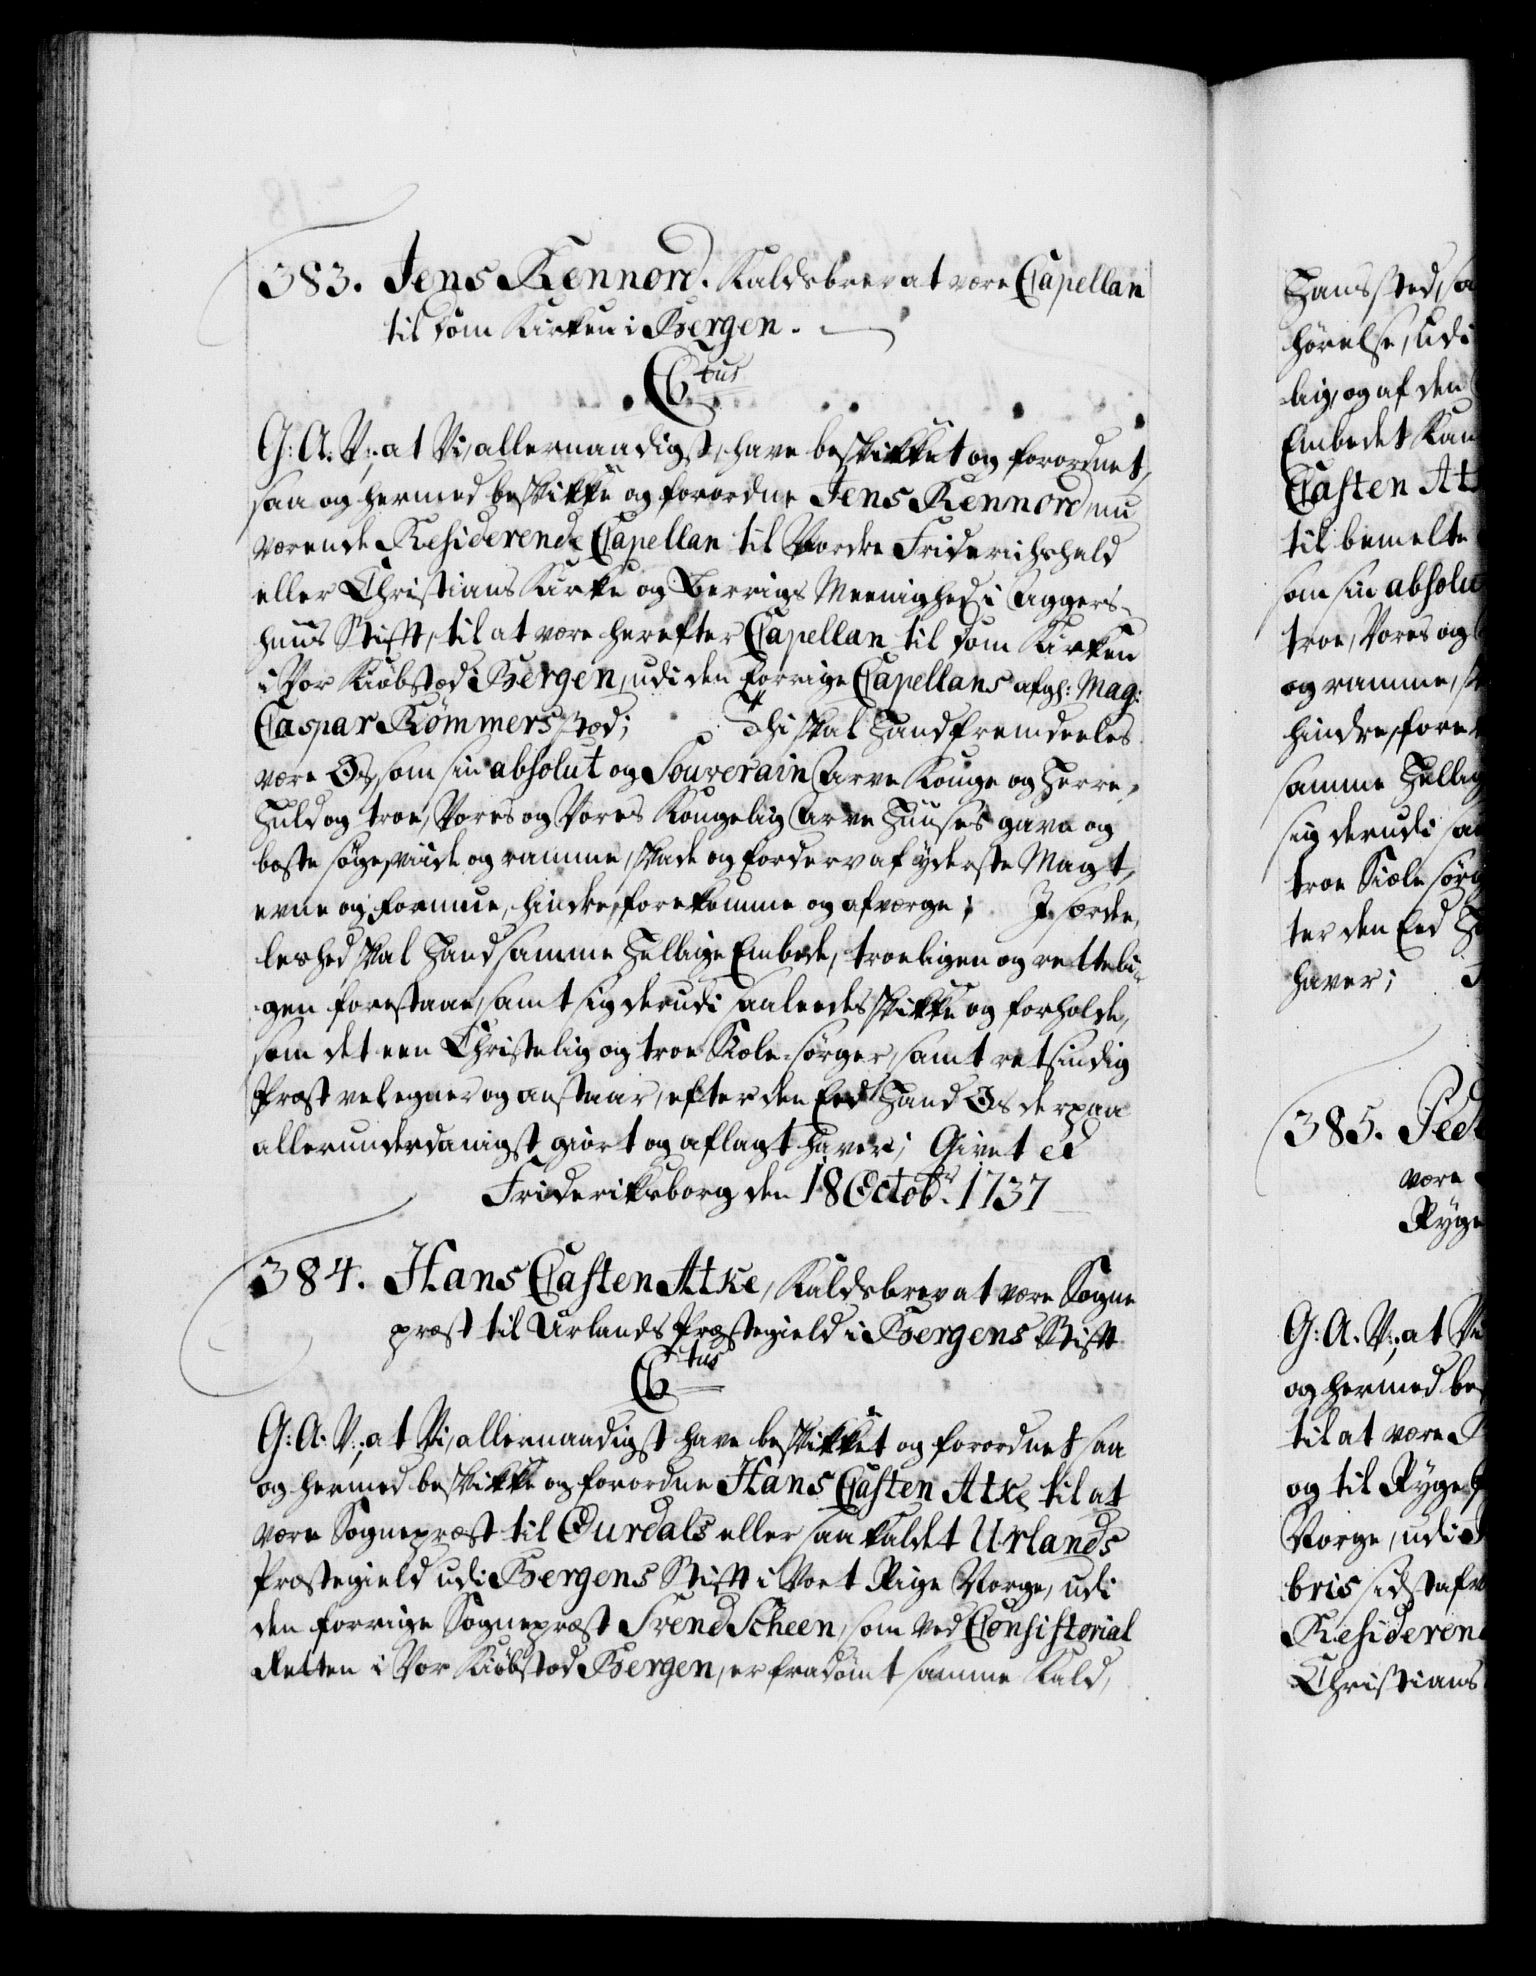 383. Jens Rennord. Kaldsbrev at være Capellan
til Dom Kirken i Bergen.
C6tus
G: A. V:, at Vi, allernaadigst, have beskikket og forordnet,
saa og hermed beskikke og forordne Jens Rennord, nu
værende Residerende Capellan til Vordre Friderichshald
eller Christians Kirke og Berrigs Meenighed i Aggers-
huus Stift, til at være herefter Capellan til Dom Kirken
i Vor Kiøbsted Bergen, udi den forrige Capellans afgl: Mag:
Caspar Römmers sted; Thi skal Hand fremdeeles
være Os, som sin absolut og Souverain Arve Konge og Herre,
Huld og troe, Vores og Vores Kongelig Arve Huuses gavn og
beste søge, viide og ramme, skade og fordærv af yderste Magt,
evne og formue, hindre, forekomme og afværge; I særde-
leshed skal Hand samme Hellige Embede, troeligen og retteli-
gen forestaae, samt sig derudi saaleedes skikke og forholde,
som det een Christelig og troe Siæle-sörger, samt retsindig
Præst vel egner og anstaar, efter den Eed Hand Os derpaa
allerunderdanigst giort og aflagt haver; Givet etc
Frideriksborg den 18 Octobr: 1737
384. Hans Casten Atke, Kaldsbrev at være Sogne
præst til Urlands Præstegield i Bergens Stift
C6tus
G: A. V:, at Vi, allernaadigst have beskikket og forordnet saa
og hermed beskikke og forordne Hans Casten Atke til at
være Sognepræst til Ourdals eller saa kaldet Urlands
Præstegield udi Bergens Stift i Vort Rige Norge, udi
den forrige Sognepræst Svend Scheen, som ved Consistorial
Retten i Vor Kiøbsted Bergen, er fradömt samme Kald,
Hans sted, sa
hörelse, udi
lig, og af den
Embedet kan
Casten At
til bemelte
som sin absolu
troe, Vores og
og ramme, s
hindre, fore
samme Hellig
sig derudi sa
troe Siæle sörg
ter den Eed Ha
haver;
385. Ped
være
Ryge
G: A. V:, at Vi
og hermed bes
til at være
og til Ryge
Norge, udi
bris sidst afv
Residerend
Christians